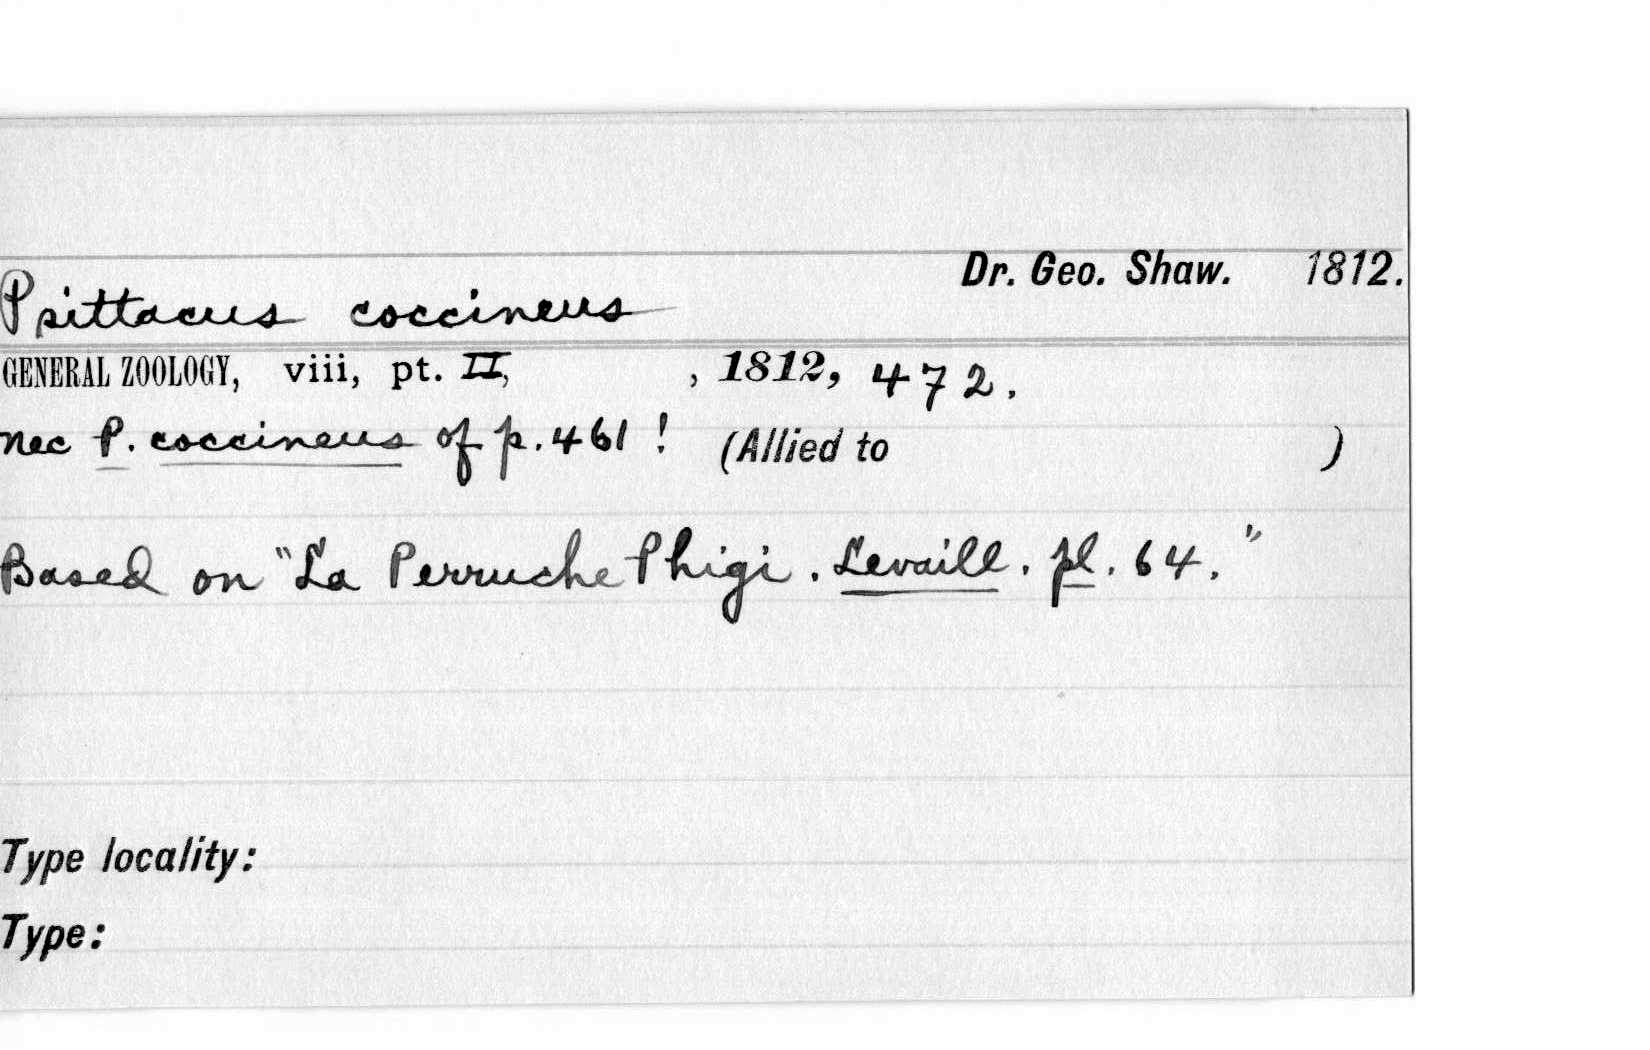 Dr. Geo. Shaw. 1812.
Psittacus coccineus
GENERAL ZOOLOGY, viii, pt. II, , 1812, 472.
nec P. coccineus of p. 461 ! (Allied to )
Based on "La Perruche Phigi. Levaill. pl. 64."
Type locality:
Type: